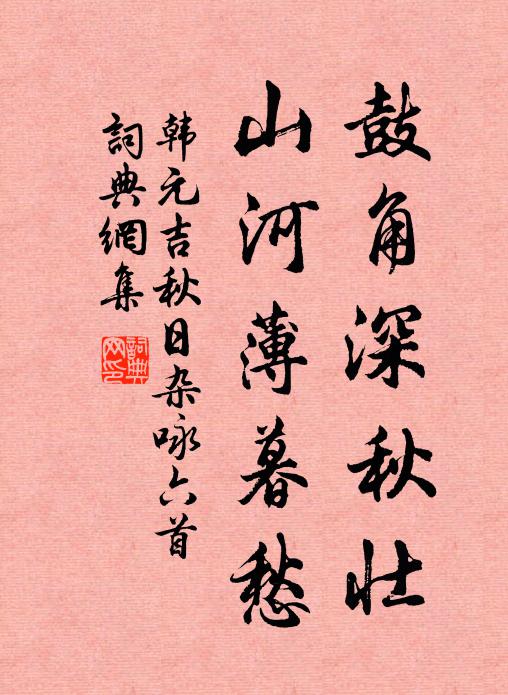 鼓角深秋壮
山河薄暮愁
韩元吉秋日杂咏六首
詞典網集
詞典網印